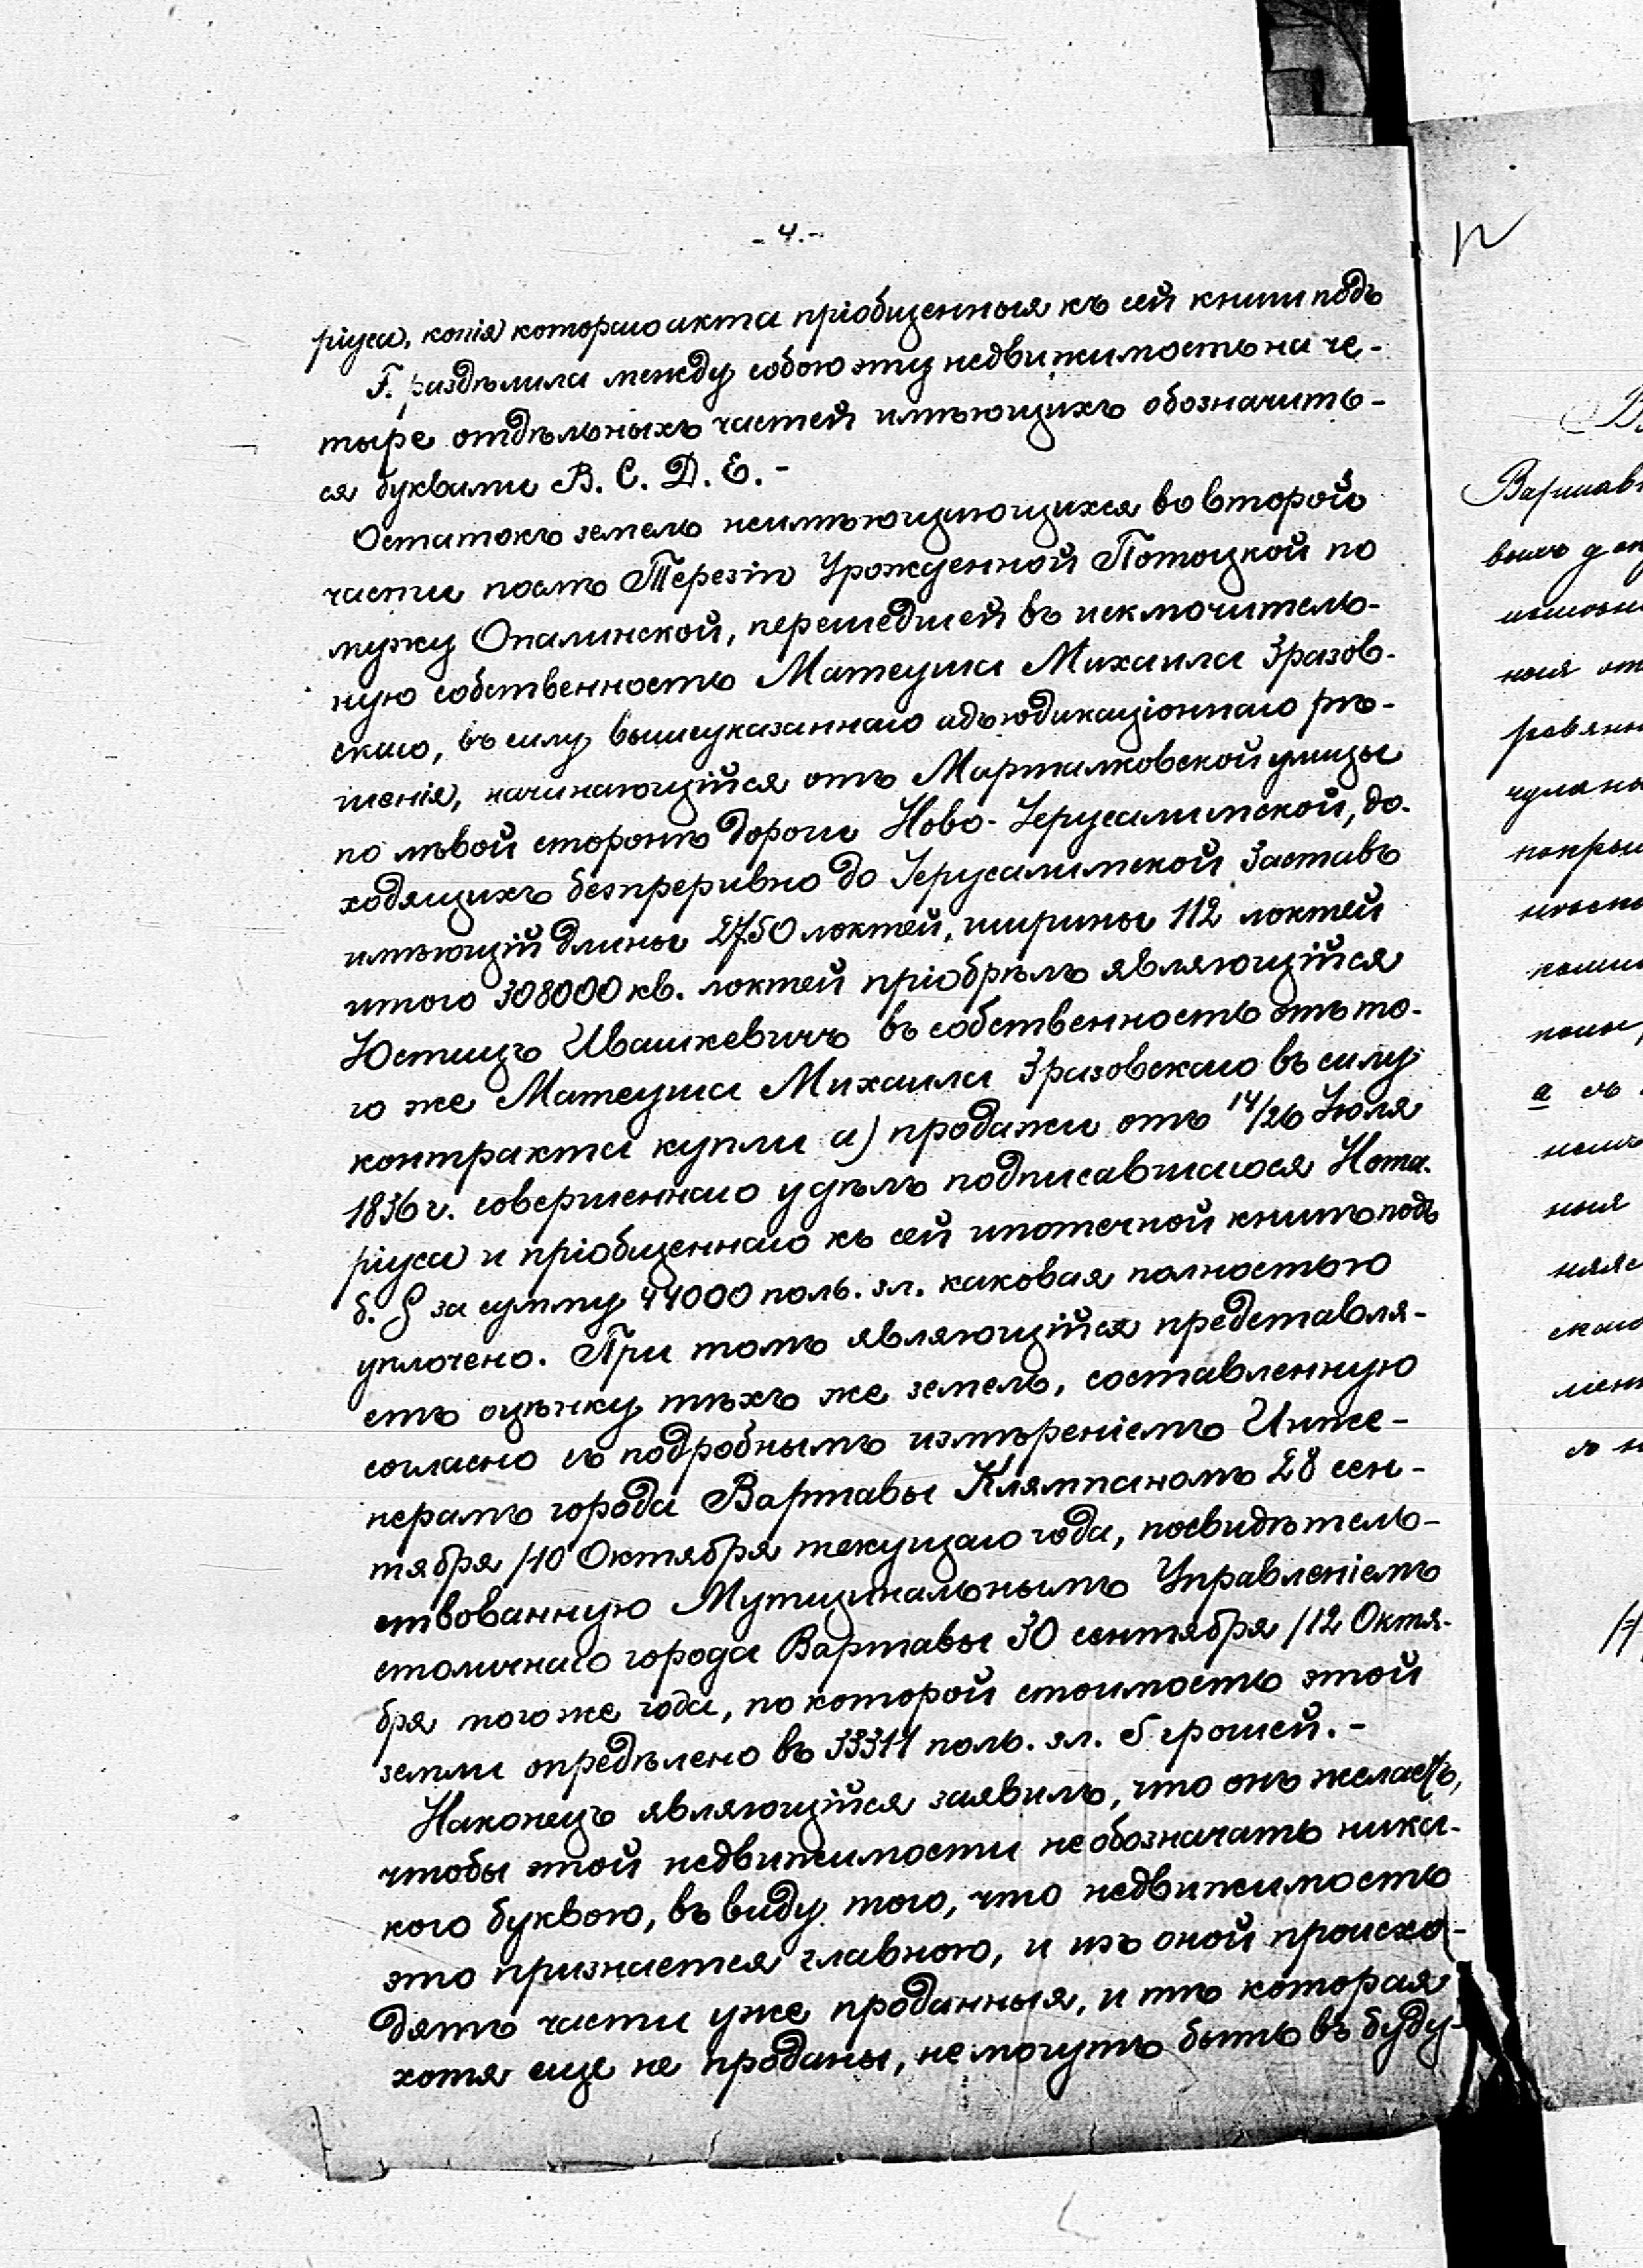 - 4. -
ріуса, копія котораго акта пріобщенныя къ сей книги подъ
F. раздѣлила между собою эту недвижимость на че-
тыре отдѣльныхъ частей имѣющихъ обозначить-
ся буквами B. C. D. E. -
Остатокъ земель неимѣющиющихся во второй
части послѣ Терезіи Урожденной Потоцкой по
мужу Опалинской, перешедшей въ исключитель-
ную собственность Матеуша Михаила Зразов-
скаго, въ силу вышеуказаннаго адъюдикаціоннаго рѣ-
шенія, начинающійся отъ Маршалковской улицы
по лѣвой сторонѣ дороги Ново-Іерусалимской, до-
ходящихъ безпреривно до Іерусалимской Заставъ
имѣющій длины 2750 локтей, ширины 112 локтей
итого 308000 кв. локтей пріобрѣлъ являющійся
Юстицъ Ивашкевичъ въ собственность отъ то-
го же Матеуша Михаила Зразовскаго въ силу
контракта купли а) продажи отъ 14/26 Іюля
1836 г. совершеннаго у сѣмъ подписавшагося Нота-
ріуса и пріобщеннаго къ сей ипотечной книгѣ подъ
б. § за сумму 44000 поль. зл. каковая полностью
уплочено. При томъ являющійся представля-
етъ оцѣнку тѣхъ же земель, составленную
согласно съ подробнымъ измѣреніемъ Инже-
нерамъ города Варшавы Клямпаномъ 28 сен-
тября /10 Октября текущаго года, посвидѣтель-
ствованную Мутиципальнымъ Управленіемъ
столичнаго города Варшавы 30 сентября /12 Октя-
бря того же года, по которой стоимость этой
земли опредѣлено въ 33311 поль. зл. 5 грошей. -
Наконецъ являющійся заявилъ, что онъ желаетъ,
чтобы этой недвижимости не обозначать ника-
кого буквою, въ виду того, что недвижимость
это признается главною, и изъ оной происхо-
дятъ части уже проданныя, и тѣ которая
хотя еще не проданы, не могутъ быть въ буду-